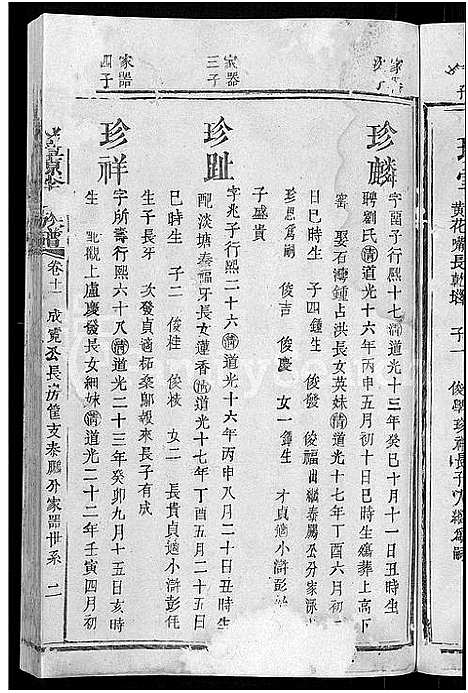 家器
三子
家器
四子
珍麟
字酉子行熙十七清道光十三年癸巳十月十一日丑時生
聘劉氏清道光十六年丙申五月初十日巳時生殤葬上高下
窰 娶石灣鍾占洪長女英妹清道光十七年丁酉六月初
日巳時生 子四鍾生 俊發 俊福出繼泰鵬公分家
珍恩爲嗣 俊吉 俊慶 女一鍾生 才貞適小滸彭
子盛貴
珍趾
字兆子行熙二十六清道光十六年丙申八月二十日丑時生
配淡塘秦福牙長女蓮香清道光十七年丁酉五月二十五日
巳時生 子二 俊桂 俊枝 女二 長貴貞適小滸彭任
生子長牙 次發貞適拓泰鄔報來長子有成
珍祥
字所壽行熙六十八清道光二十三年癸卯九月十五日亥時
生 配觀上盧慶發長女細妹清道光二十二年壬寅四月初
族譜
卷十一 成寬公長房筐支泰鵬分家器世系 二
黃花 長乾
子一 俊